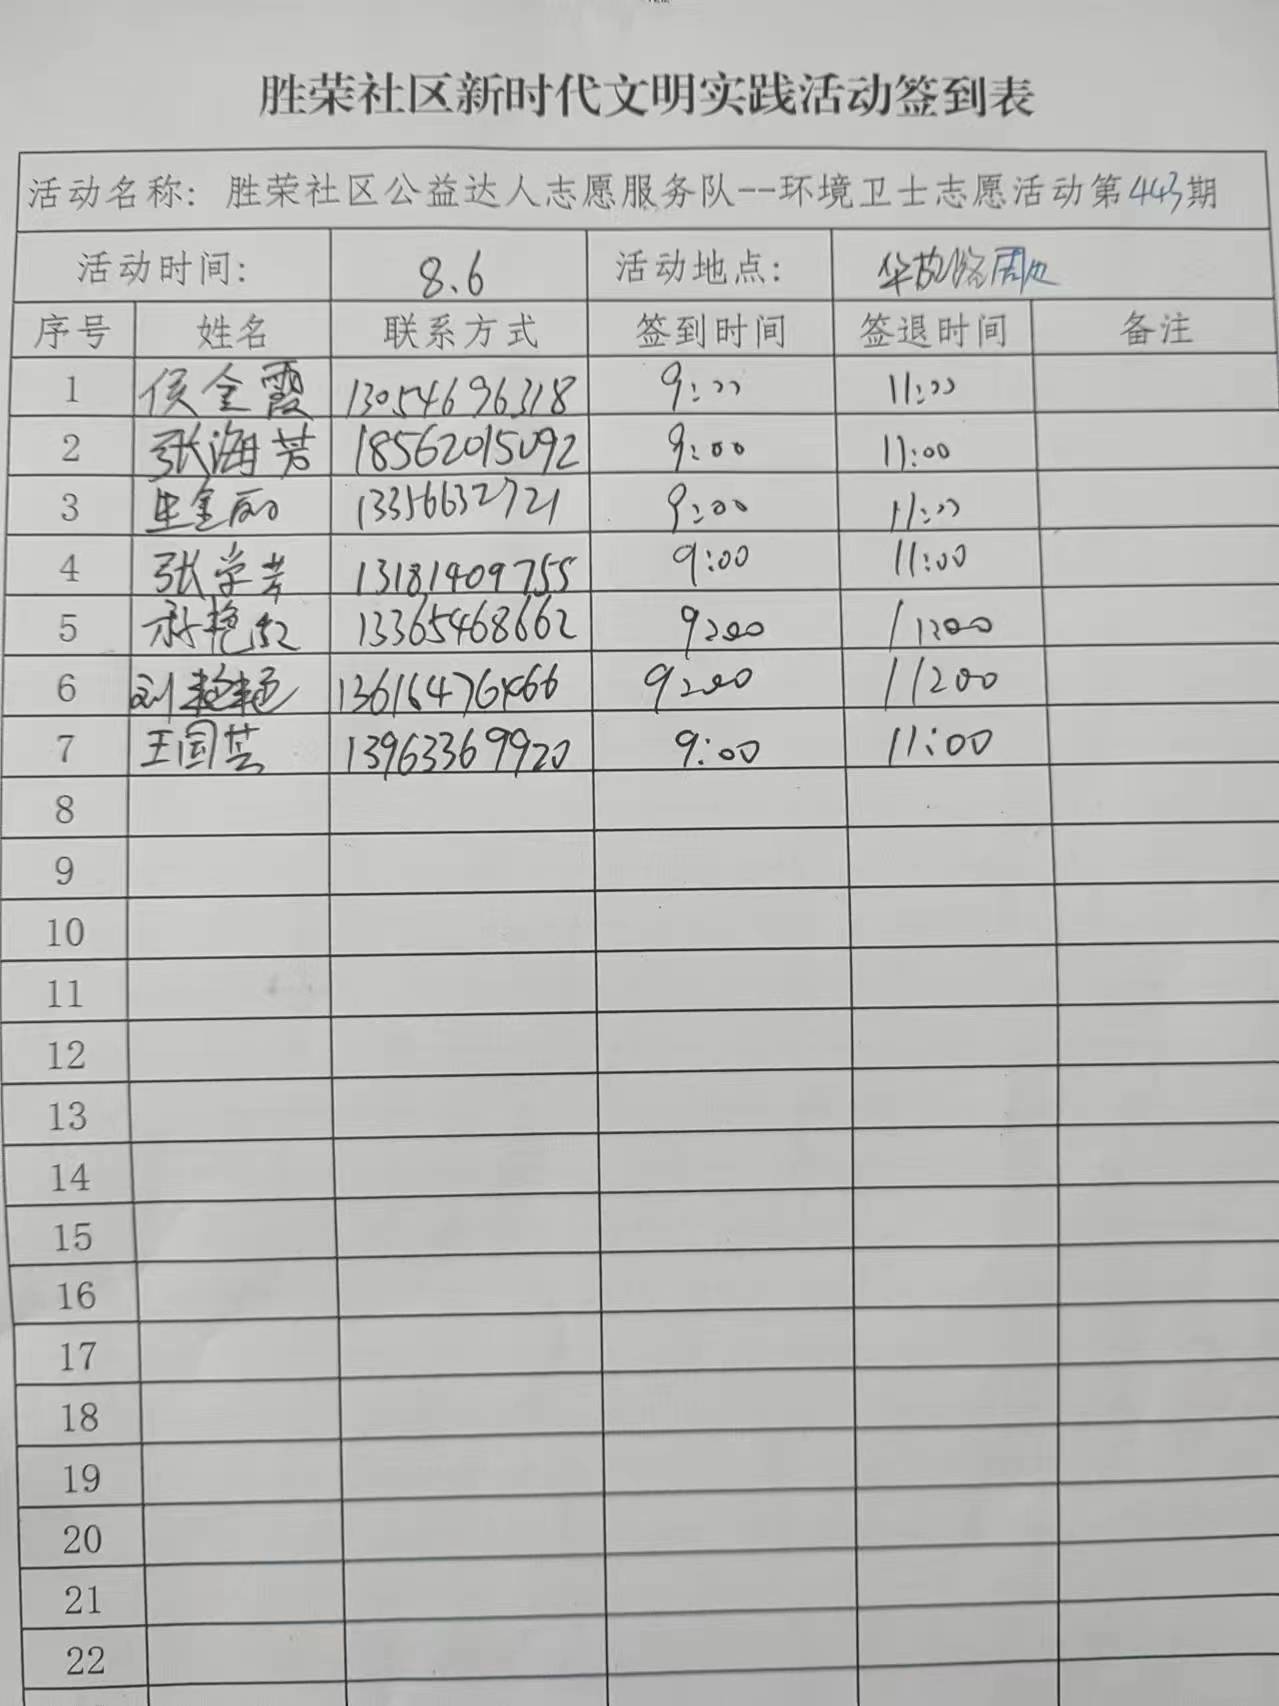 胜荣社区新时代文明实践活动签到表
活动名称：胜荣社区公益达人志愿服务队--环境卫士志愿活动第443期
活动时间： 8.6 活动地点： 路周边
序号 姓名 联系方式 签到时间 签退时间 备注
1 侯金霞 13054696318 9:00 11:00
2 张海芳 18562015092 9:00 11:00
3 金丽 13356632721 9:00 11:00
4 张学芳 13181409755 9:00 11:00
5 艳红 13365468662 9:00 11:00
6 刘艳艳 9:00 11:00
7 王国芸 13963369920 9:00 11:00
8
9
10
11
12
13
14
15
16
17
18
19
20
21
22